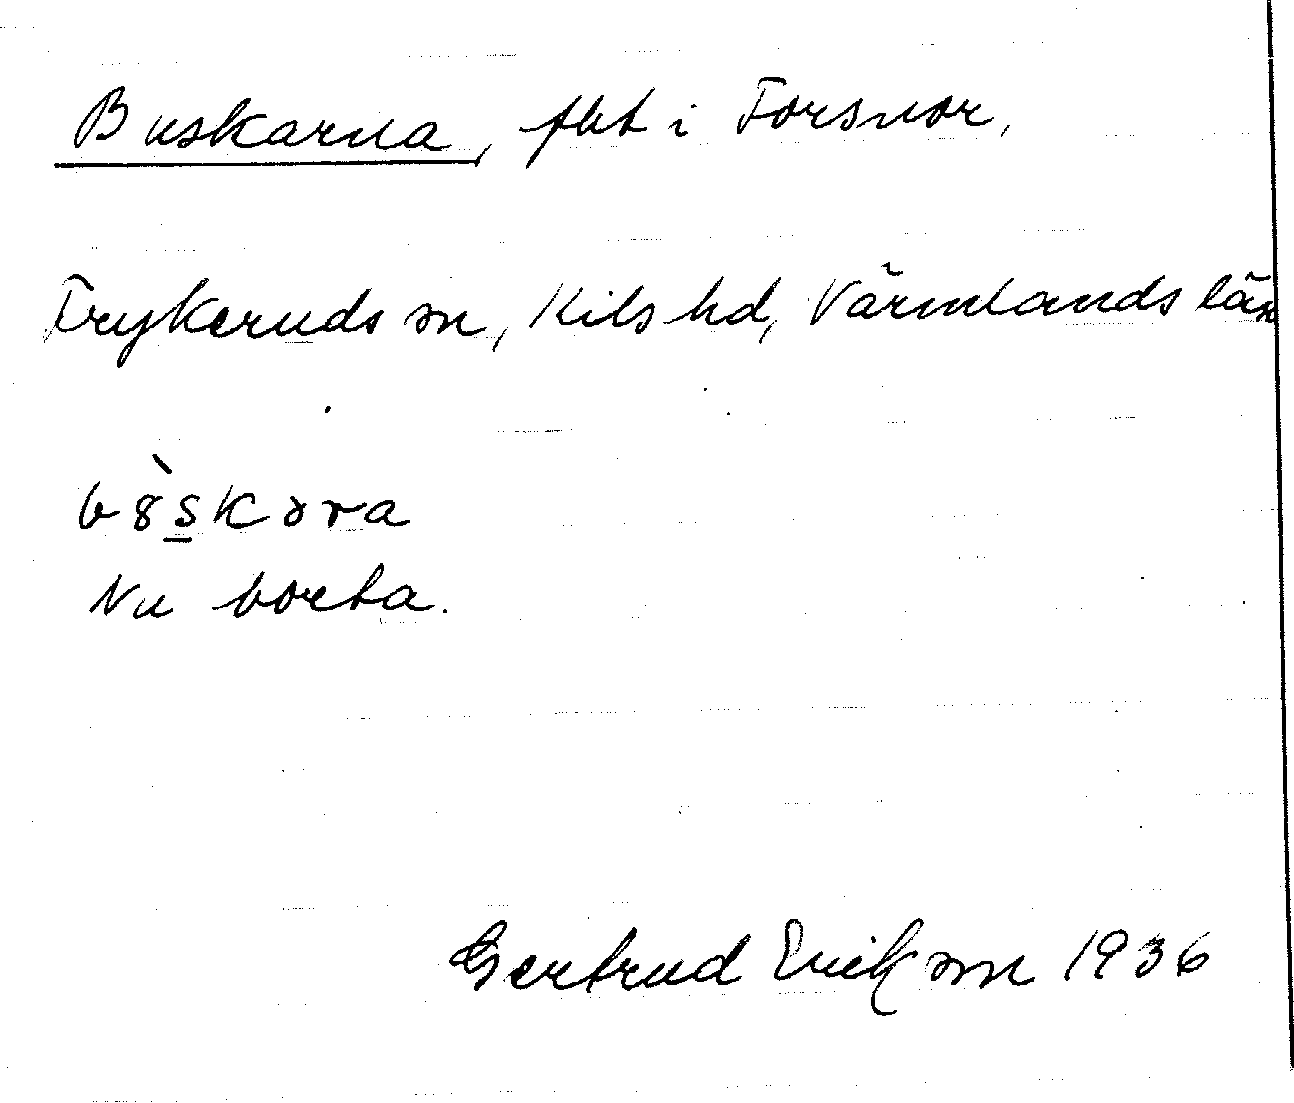 Buskarna, fbt i Forsnor,
Frykeruds sn, Kils hd, Värmlands län
b8̀skəra
Nu borta.
Gertrud Erikson 1936